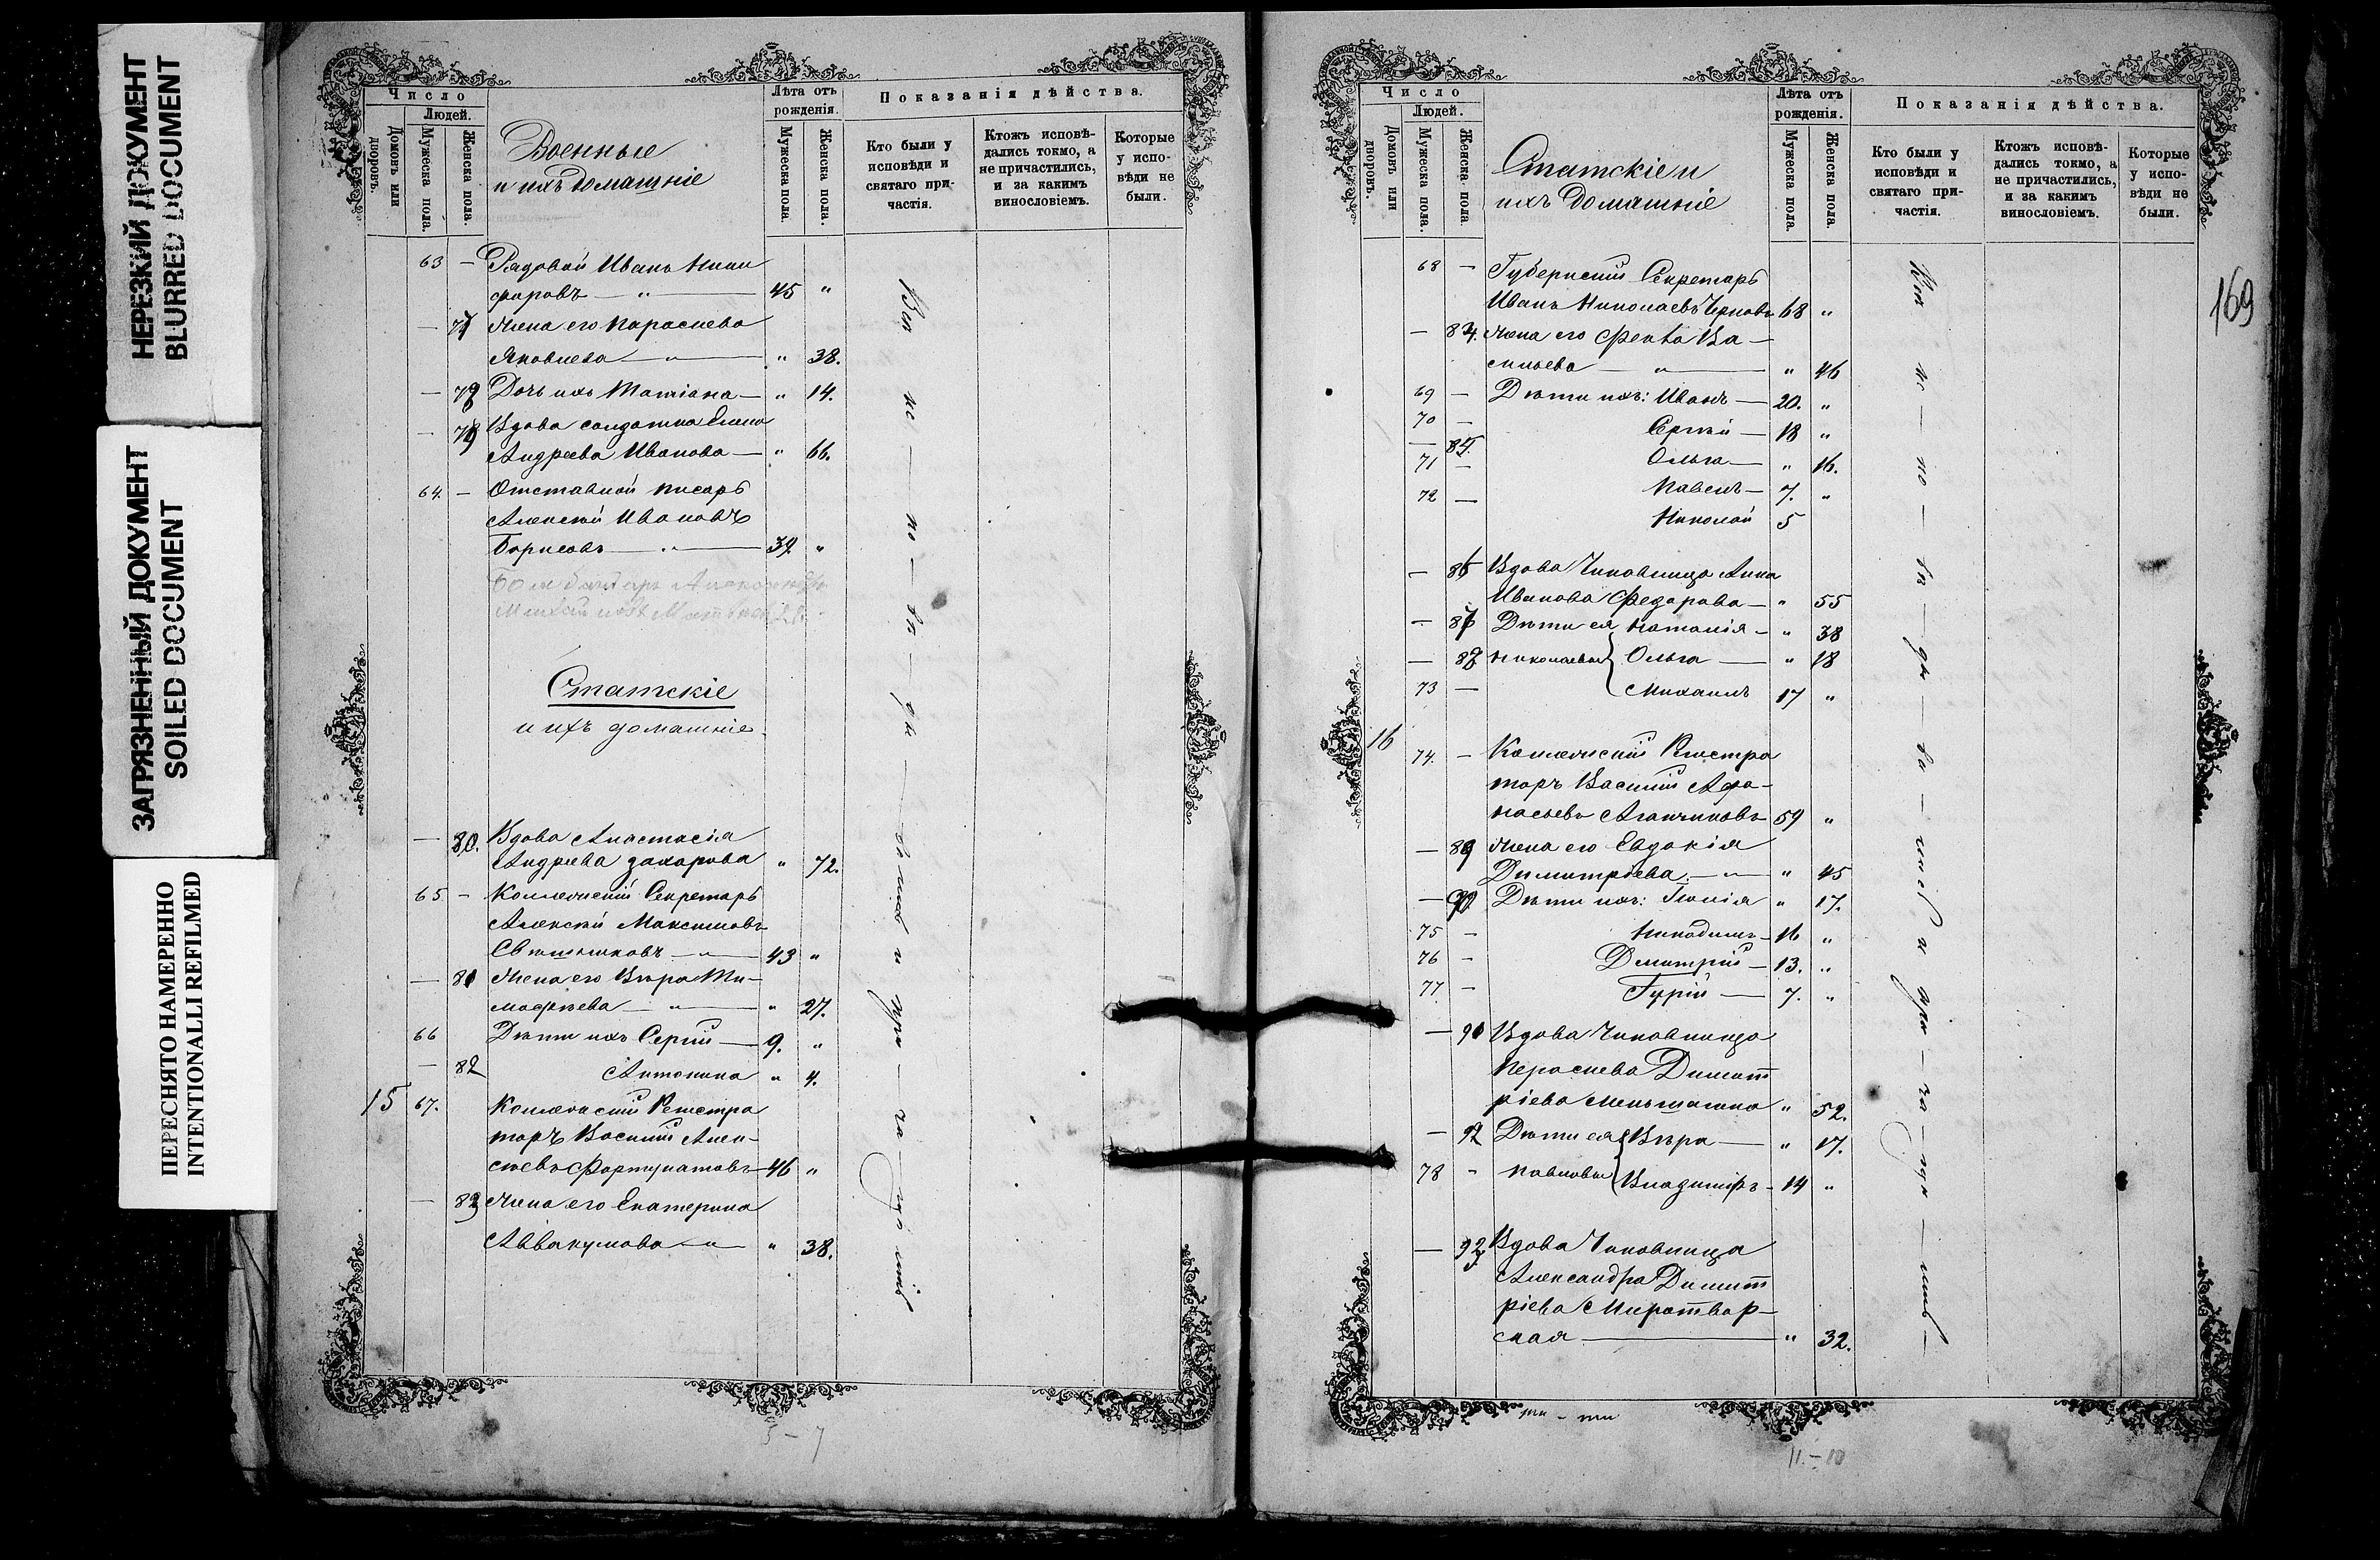 НЕРЕЗКИЙ ДОКУМЕНТ
BLURRED DOCUMENT
ЗАГРЯЗНЕННЫЙ ДОКУМЕНТ
SOILED DOCUMENT
ПЕРЕСНЯТО НАМЕРЕННО
INTENTIONALLI REFILMED
Число
Людей.
Домовъ или дворовъ.
Мужеска пола.
Женска пола.
Военные
и ихъ домашніе
Лѣта отъ рожденія.
Мужеска пола.
Женска пола.
Показанія дѣйства.
Кто были у исповѣди и святаго причастія.
Ктожъ исповѣдались токмо, а не причастились, и за какимъ винословіемъ.
Которые у исповѣди не были.
63 — Рядовой Иванъ Ники
форовъ — " — 45 "
— Жена его Параскева
Яковлева — " — " 38.
— Дочь ихъ Татіана — " 14.
— Вдова солдатка Елена
Андреева Иванова — " 66.
64. — Отставной писарь
Алексѣй Ивановъ
Борисовъ — " — 39 "
Статскіе
и ихъ домашніе
— 80. Вдова Анастасія
Андреева Захарова " 72.
65 — Коллежскій Секретарь
Алексѣй Максимовъ
43 "
— 81 Жена его Вѣра Ти-
мофѣева — " — " 27.
66 Дѣти ихъ Сергій — 9. "
— 82 Антонина " 4.
15 67. Коллежскій Регистра
торъ Василій Алек-
сѣевъ Фортунатовъ 46 "
— 83 Жена его Екатерина
Аввакумова — " — " 38.
5 - 7
169
Число
Людей.
Домовъ или дворовъ.
Мужеска пола.
Женска пола
Статскіе и
ихъ домашніе
Лѣта отъ рожденія.
Мужеска пола.
Женска пола.
Показанія дѣйства.
Кто были у исповѣди и святаго причастія.
Ктожъ исповѣдались токмо, а не причастились, и за какимъ винословіемъ.
Которые у исповѣди не были.
68 — Губернскій Секретарь
Иванъ Николаевъ Черновъ 68 "
— 84. Жена его Фекла Ва-
сильева — " — " 46
69 — Дѣти ихъ: Иванъ — 20. "
70 — Сергѣй — 18 "
— 85. Ольга — " 16.
71 — Павелъ — 7. "
72 — Николай 5
— 86 Вдова Чиновница Анна
Иванова Федорова — " 55
— 87 Дѣти ея Наталія — " 38
— 88 Николаевы Ольга — " 18
73 — Михаилъ 17 "
16 74. — Коллежскій Регистра
торъ Василій Афа-
насьевъ 59 "
— 89 Жена его Евдокія
Димитріева — " — " 45
— 90. Дѣти ихъ: Іюлія " 17.
75 — Никодимъ — 16 "
76 — Дмитрій — 13. "
77 — Гурій — 7. "
— 91 Вдова Чиновница
Параскева Димит
ріева Меньшагина " 52.
— 92 Дѣти ея Вѣра — " 17.
78 — Павловы Владиміръ — 14 "
— 93 Вдова Чиновница
Александра Димит
ріева Миротвор-
ская — " 32.
11. - 10